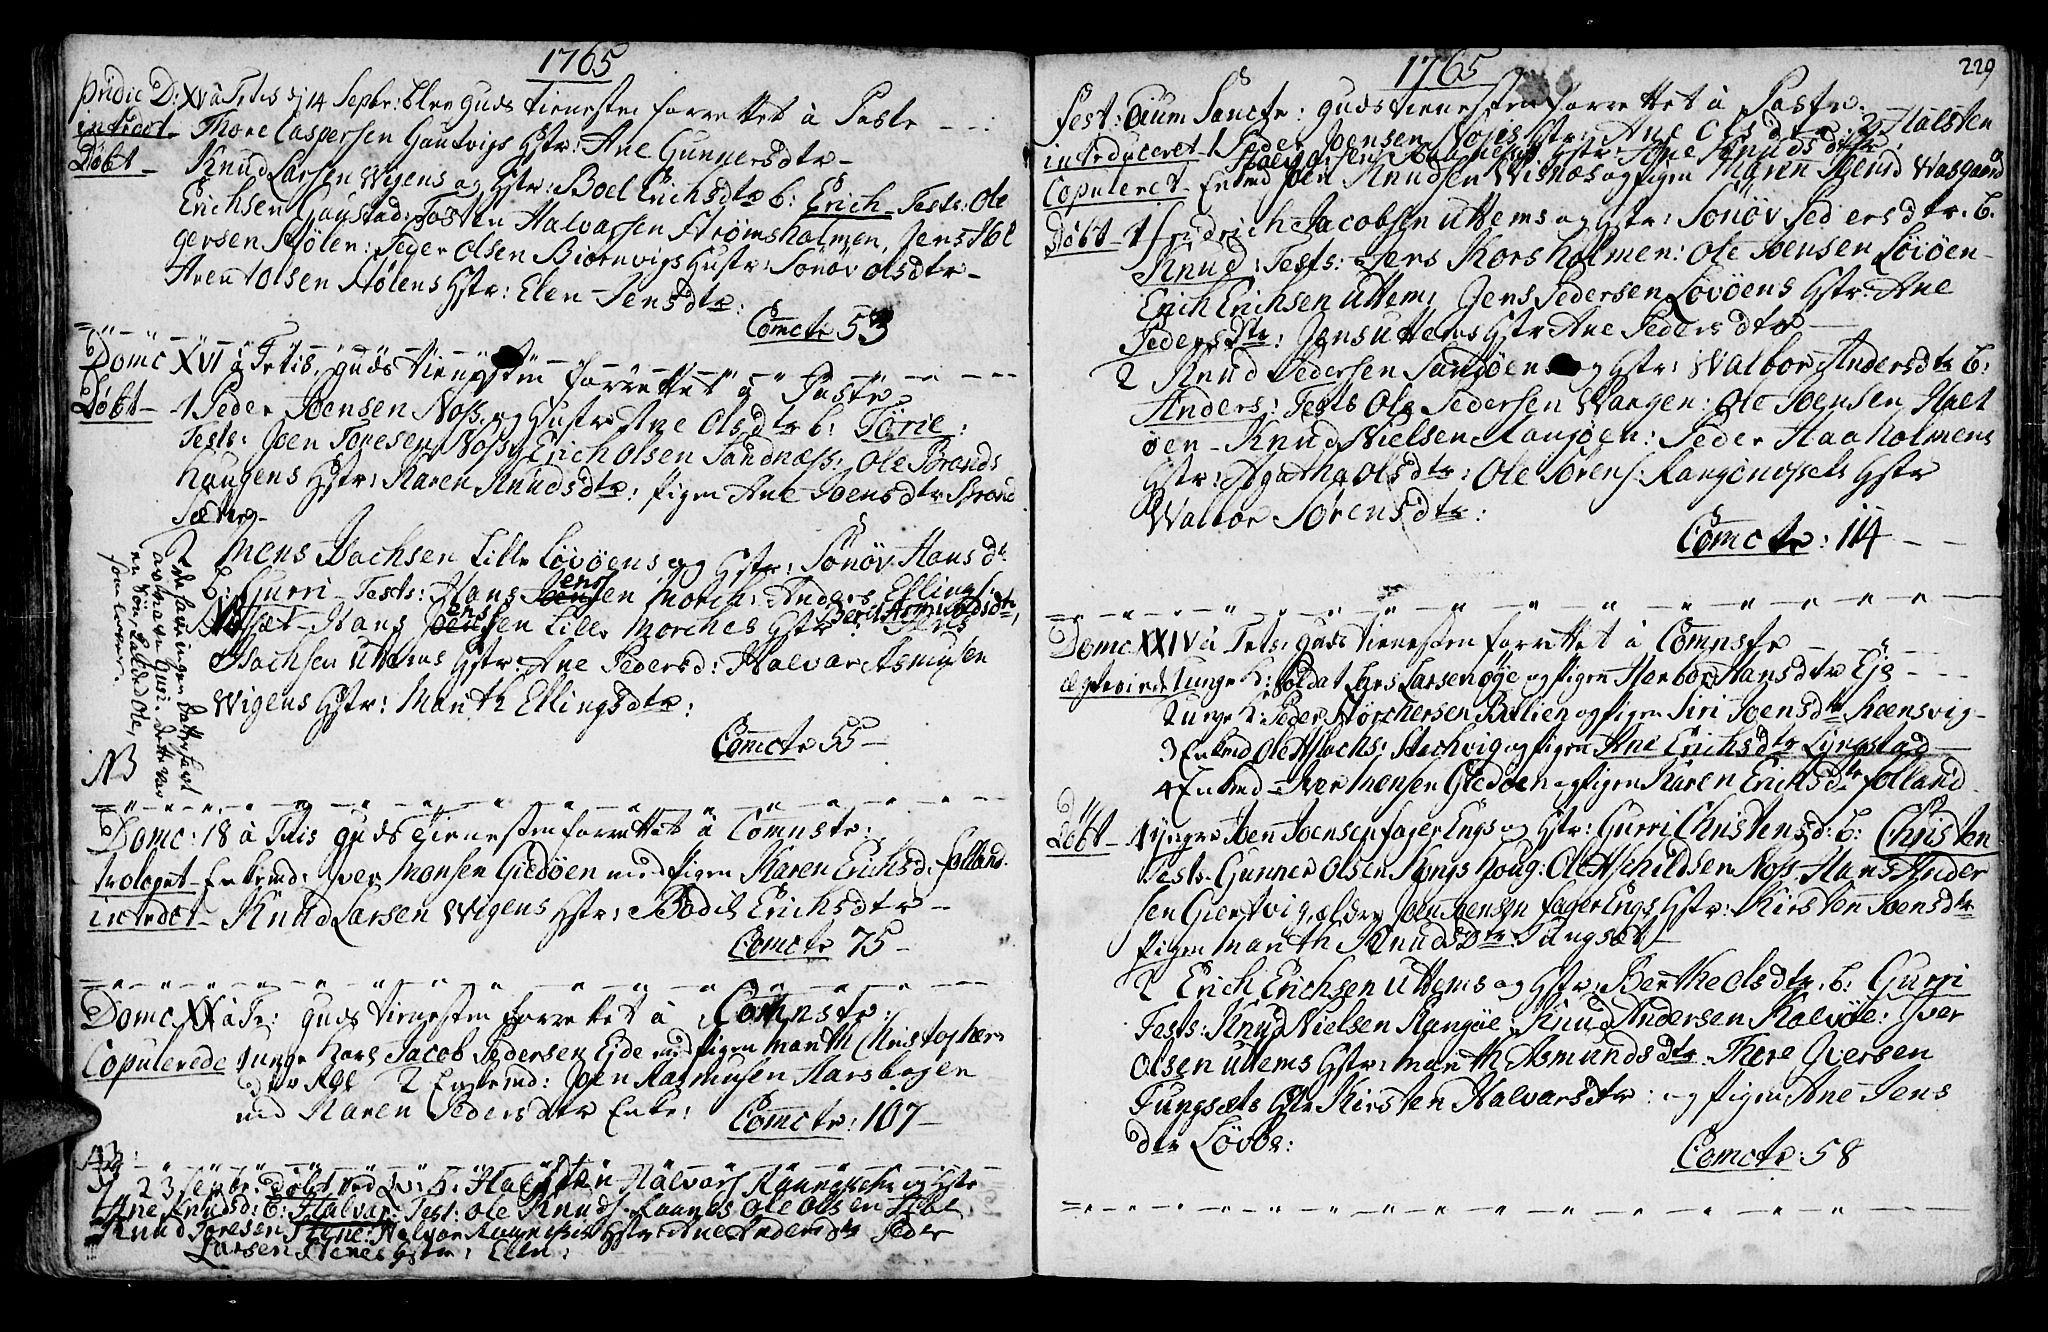 1765
pridie D: XV à Tr̄is dj 14 Septbr: blev guds tienesten forrettet å Qaste
introd: Thore Caspersen Gautvigs hstr: Ane Gunnersdtr
Døbt Knud Larsen Wigens og hstr: Boel Erichsdtr b: Erich Tests: Ole
Erichsen Gaustad: Tosten Halvarsen Strømsholmen, Jens
gersen Stølen: Peder Olsen Biørnvigs hustr: Sønøv olsdtr
Arent olsen Stølens hstr: Elen Jensdtr:
Comctr 53
Domc XVI à Tr̄tis. guds tienesten forrettet å Qaste
Døbt 1 Peder Joensen Noss og Hustr: Ane Olsdtr b: Torie:
Tests: Joen Toresen Noss, Erich Olsen Sandnæss: Ole Brands
haugens hstr: Karen Knudsdtr: pigen Ane Joensdtr Brand
Sæter
2 Mons Isachsen Lille Løvøens og hstr: Sønøv Hansdtr
b: Gurri Tests: Hans Jensen Morch: Anders Ellings:
Hans Jensen Lille Morches hstr: Berit Asmundsdtr,
Isachsen Uttems hstr: Ane Pedersd: Halvar Asmusen
Wigens hstr: Marith Ellingsdtr:
Comctr 55
NB
Domc: 18 à Tr̄tis guds tienesten forrettet å Comnstr:
trolovet Enkemd: Iver Monsen Giedøen med pigen Karen Erichsd: folland
introdct Knud Larsen Wigens hstr: Bodil Erichsdtr
Comctr 75
Domc XX à Tr: guds tienesten forrettet å Comnstr:
Copulerede unge Karl Jacob Pedersen Eide med pigen Marith Christopher
dtr 2 Enkemd: Joen Rasmusen Harsbøjen
med Karen Pedersdtr Enke:
Comctr: 107
NB:
23 Septbr: døbt ved Qv: b: Halsten Halvars og hstr
Ane Knudsd: b: Halvar Test: Ole Knuds: Ole Olsen
Knud Toresen Stene: Halvar hstr: Ane Andersdtr Peder
Larsen Stenes hstr: Elen:
1765
229
Fest: Oium Sanctr: guds tienesten forrettet å Qastr.
introduceret 1 Peder Joensen Nojes hstr: Ane Olsdtr: 2 Halsten
Halvarsen hstr: Ane Knudsdtr
Copuleret Enkemd Joen Knudsen Wisnæs og pigen Maren Wasgaard
Døbt 1 Fridrich Jacobsen Uttems og hstr: Sønøv Pedersdtr. b:
Knud: Tests: Jens Korsholmen: Ole Joensen Løvøen
Erich Erichsen Uttem, Jens Pedersen Løvøens hstr: Ane
Pedersdtr: Jens Uttems hstr Ane Pedersdtr
2 Knud Pedersen Sandøen og hstr: Walbor Andersdtr b:
Anders: Tests Ole Pedersen Waagen: Ole Joensen Hæt
øen Knud Nielsen Rangøen: Peder Haaholmens
hstr: Agatha Olsdtr: Ole Sørens: hstr
Walbor Sørensdtr:
Comctr: 114
Domc XXIV à Trts: guds tienesten forrettet å Comnstr
ægteviede unge K: Soldat Lars Larsen øye og pigen Herbor Hansdtr Eje
2 unge K: Peder Størchersen Bolien og pigen Siri Joensdtr Steensvig
3 Enkemd Ole Isachs: Stachvig og pigen Ane Erichsdtr Lyngstad
4 Enkemd Iver Monsen Giedøen og pigen Karen Erichsdtr folland
Døbt 1 yngre Joen Joensen fager Engs og hstr: Gurri Christensd: b: Christen
Tests: Gunner Olsen Kongshoug: Ole Eschildsen Noss: Hans Ander
sen Giertvig, ældre Joen Joensen fager Engs hstr: Kirsten Joensdtr
pigen Marith Knudsdtr: Tungsæt
2 Erich Erichsen Uttems og hstr: Berthe Olsdtr: b: Gurri
Tests: Knud Nielsen Rangøe: Knud Andersen Kalvøe: Iver
Olsen Uttems hstr: Marith Asmundsdtr Thore Iversen
Tungsæts hstr Kirsten Halvarsdtr: og pigen Ane Jens
dtr Løvøe:
Comctr: 58